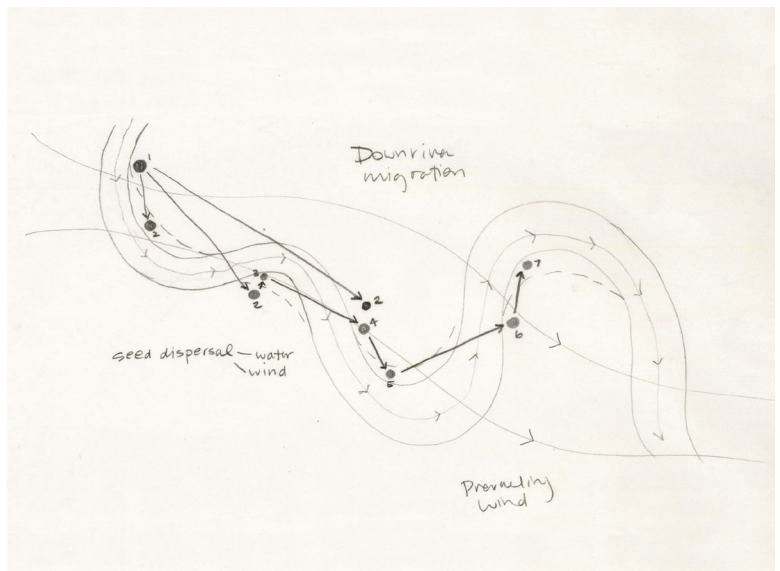 Downriver
migration
1
2
3
2
2
4
5
6
7
seed dispersal — water
wind
Prevailing
wind